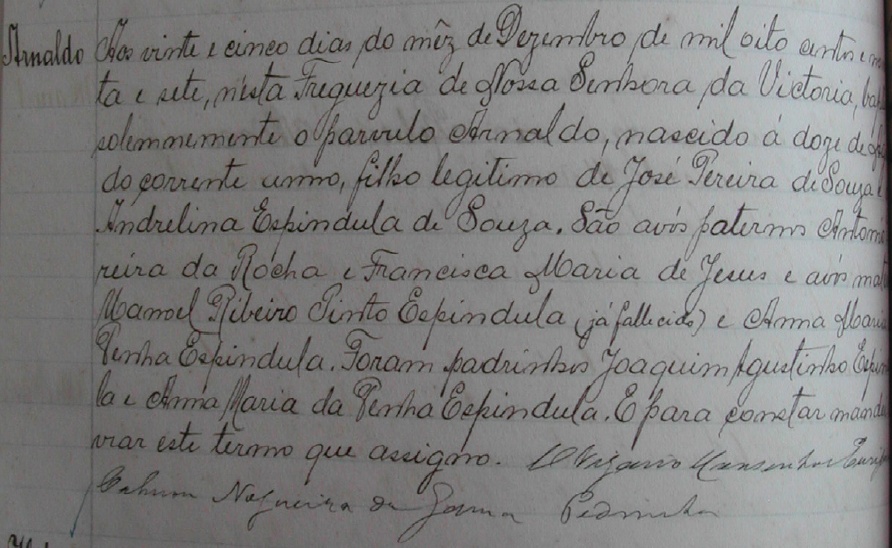 Arnaldo Aos vinte e cinco dias do mêz de Dezembro de mil oito centos e no
ta e sete, nésta Freguezia de Nossa Senhora da Victoria, bap
solemnemente o parvulo Arnaldo, nascido á doze de
do corrente anno, filho legitimo de José Pereira de Souza e
Andrelina Espindula de Souza. São avós paternos Antoni
reira da Rocha e Francisca Maria de Jesus e avós mat
Manoel Ribeiro Pinto Espindula (já fallecido) e Anna Maria
Penha Espindula. Foram padrinhos Joaquim Agustinho Espin
la e Anna Maria da Penha Espindula. E para constar mand
vrar este termo que assigno. O Vigario Monsenhor
Nogueira da Gama Pedrinha